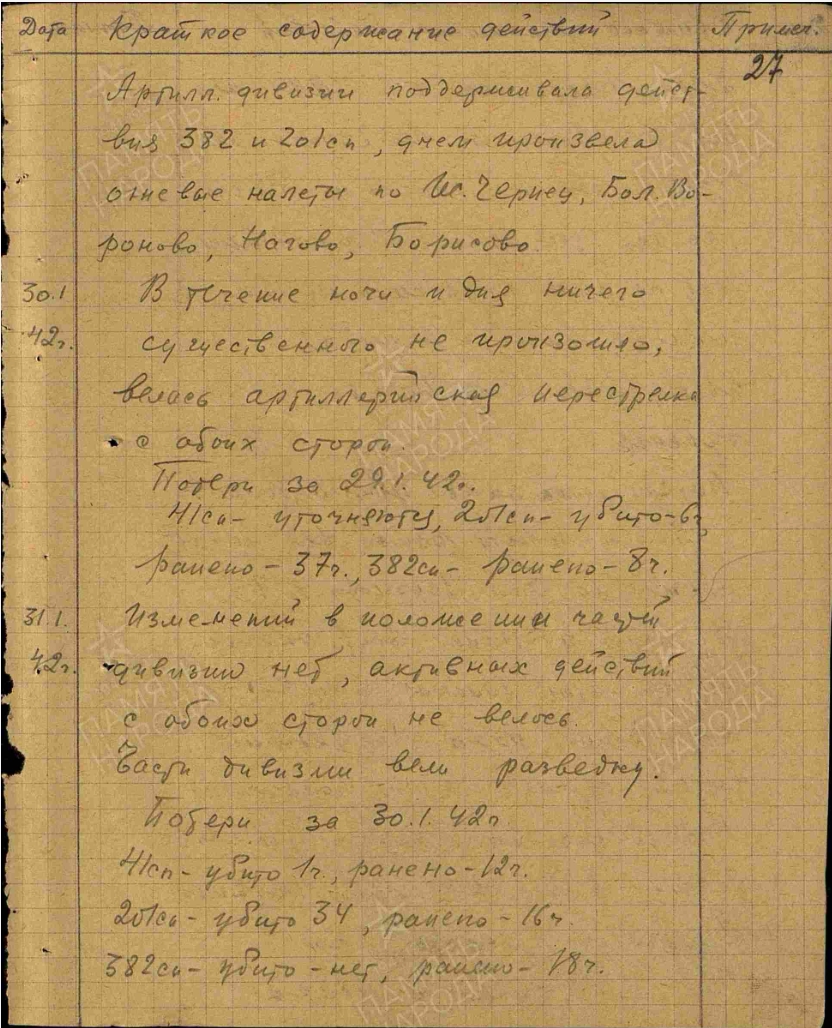 Дата Краткое содержание действий Примеч.
27
Артилл. дивизии поддерживала дейст-
вия 382 и 201сп, днем произвела
огневые налеты по Шк. Чернец, Бол. Во-
роново, Нагово, Борисово.
30.1 В течение ночи и дня ничего
42г. существенного не произошло,
велась артиллерийская перестрелка
с обоих сторон.
Потери за 29.1.42г.
41сп- уточняются, 201сп- убито-6ч,
ранено- 37ч., 382сп- ранено- 8ч.
31.1. Изменений в положении частей
42г. дивизии нет, активных действий
с обоих сторон не велось.
Части дивизии вели разведку.
Потери за 30.1.42г
41сп- убито 1ч., ранено-12ч.
201сп- убито 34, ранено-16ч.
382сп- убито-нет, ранено- 18ч.
ПАМЯТЬ
НАРОДА